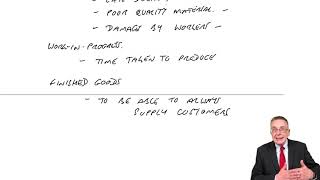 - POOR QUALITY MATERIAL -
- DAMAGE BY WORKERS -
WORK-IN-PROGRESS.
- TIME TAKEN TO PRODUCE
FINISHED GOODS
- TO BE ABLE TO ALWAYS
SUPPLY CUSTOMERS